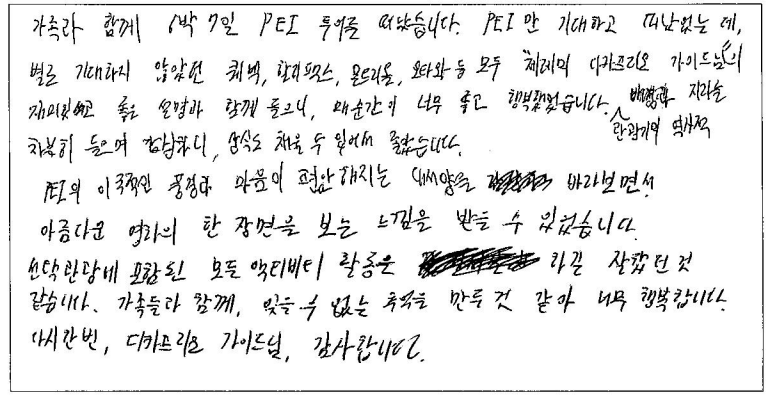 가족과 함께 6박 7일 PEI 투어를 떠났습니다. PEI만 기대하고 떠났었는데,
별로 기대하지 않았던 퀘벡, 할리팩스, 몬트리올, 오타와 등 모두 "제레미 디카프리오 가이드님"의
재미있고 좋은 설명과 함께 들으니, 매순간이 너무 좋고 행복했었습니다. 배경과 지리를
관광지의 역사적
차분히 들으며 감상하니, 상식도 채울 수 있어서 좋았습니다.
PEI의 이국적인 풍경과 마음이 편안해지는 대서양을 바라보면서
아름다운 영화의 한 장면을 보는 느낌을 받을 수 있었습니다.
선택관광에 포함된 모든 액티비티 활동은 하길 잘했던 것
같습니다. 가족들과 함께, 잊을 수 없는 추억을 만든 것 같아 너무 행복합니다.
다시한번, 디카프리오 가이드님, 감사합니다.